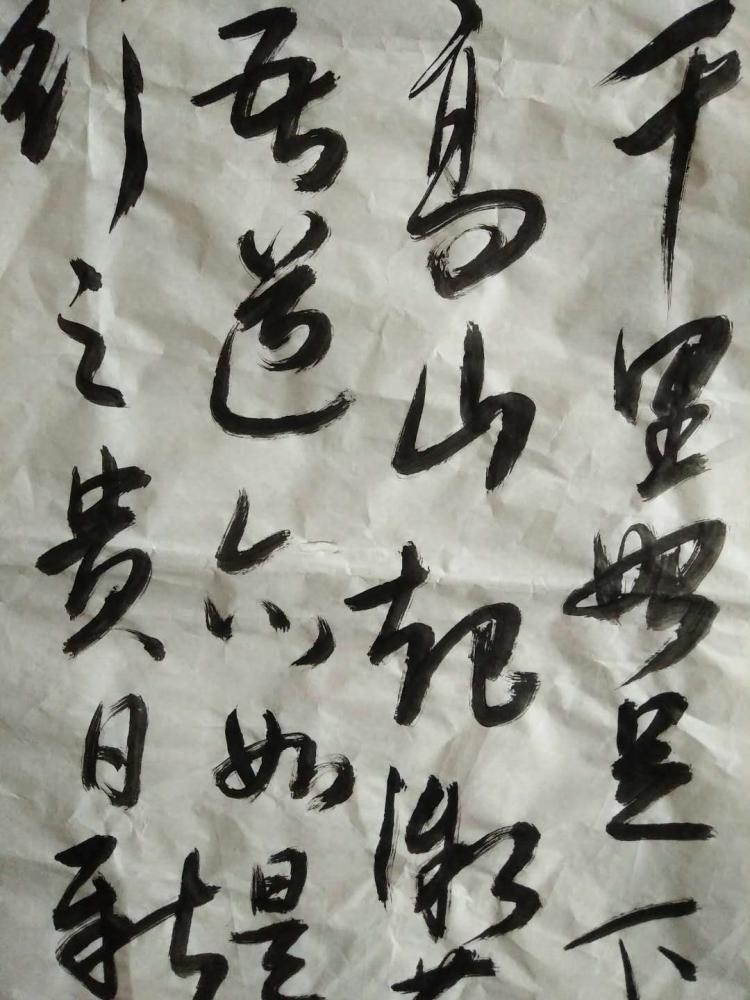 千里始足下
高山起微
吾道亦如是
行之貴日新